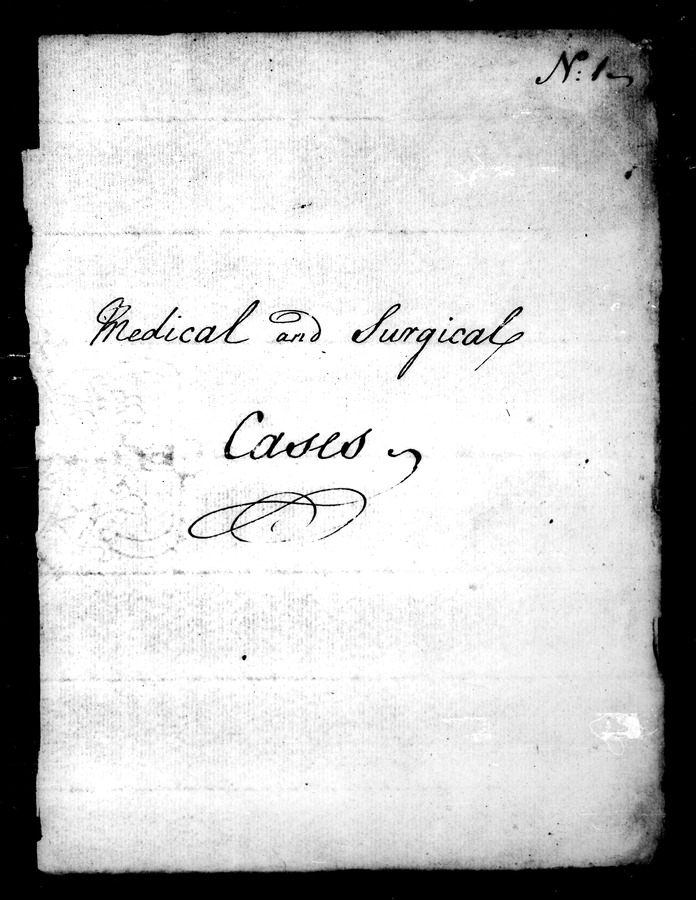 N: 1
Medical and Surgical
Cases